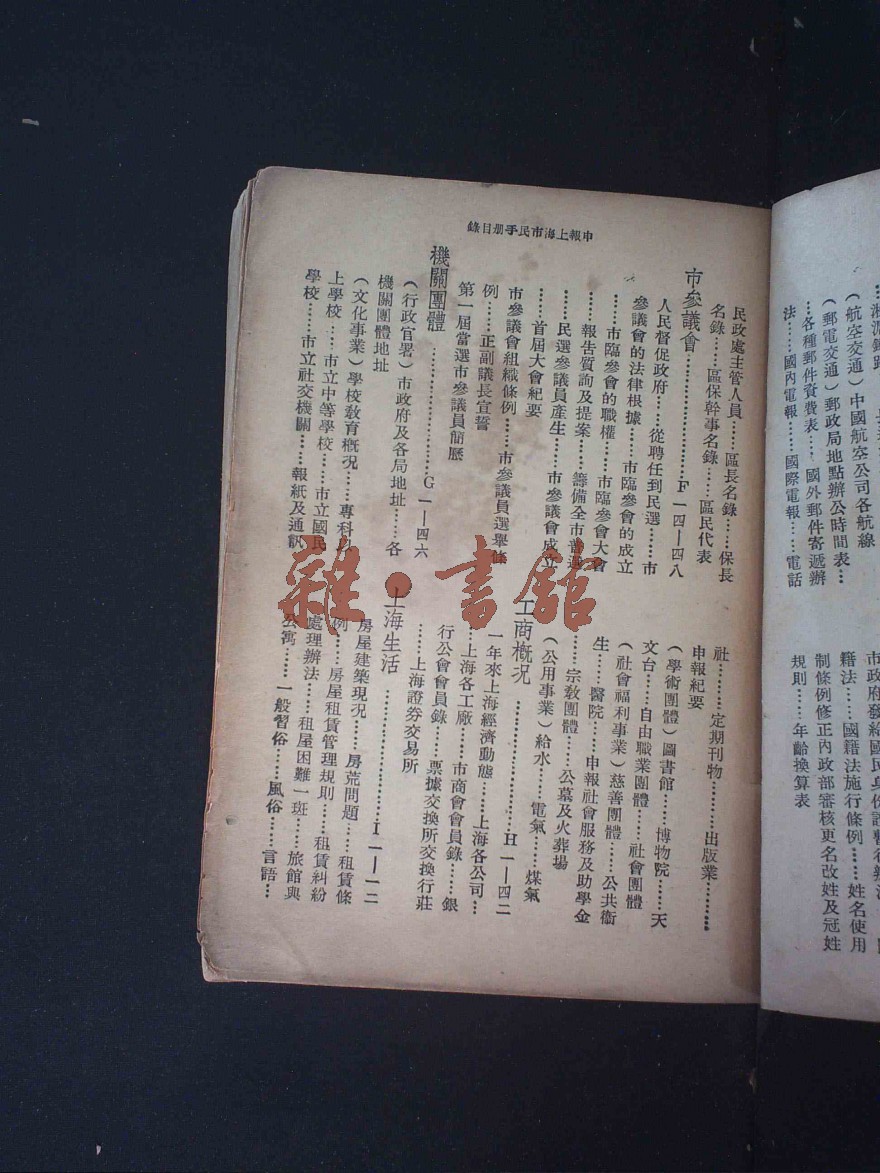 法……國內電報……國際電報……電話
……各種郵件資費表……國外郵件寄遞辦
（郵電交通）郵政局地點辦公時間表…
（航空交通）中國航空公司各航線
籍法……國籍法施行條例……姓名使用
制條例修正內政部審核更名改姓及冠姓
規則……年齡換算表
申報上海市民手册目錄
民政處主管人員……區長名錄……保長
名錄……區保幹事名錄……區民代表
市參議會……F一四—四八
人民督促政府……從聘任到民選……市
參議會的法律根據……市臨參會的成立
……市臨參會的職權……市臨參會大會
……報告質詢及提案……籌備全市普選
……民選參議員產生……市參議會成立
……首屆大會紀要
市參議會組織條例……市參議員選舉條
例……正副議長宣誓
第一屆當選市參議員簡歷
機關團體……G一—四六
（行政官署）市政府及各局地址……各
機關團體地址
（文化事業）學校教育概況……專科以
上學校……市立中等學校……市立國民
學校……市立社交機關……報紙及通訊
社……定期刊物……出版業……
申報紀要
（學術團體）圖書館……博物院……天
文台……自由職業團體……社會團體
（社會福利事業）慈善團體……公共衞
生……醫院……申報社會服務及助學金
……宗教團體……公墓及火葬場
（公用事業）給水……電氣……煤氣
工商概况……H一—四二
一年來上海經濟動態……上海各公司…
…上海各工廠……市商會會員錄……銀
行公會會員錄……票據交換所交換行莊
……上海證券交易所
上海生活……I一—一二
房屋建築現況……房荒問題……租賃條
例……房屋租賃管理規則……租賃糾紛
處理辦法……租屋困難一斑……旅館與
公寓……一般習俗……風俗……言語…
雜·書館